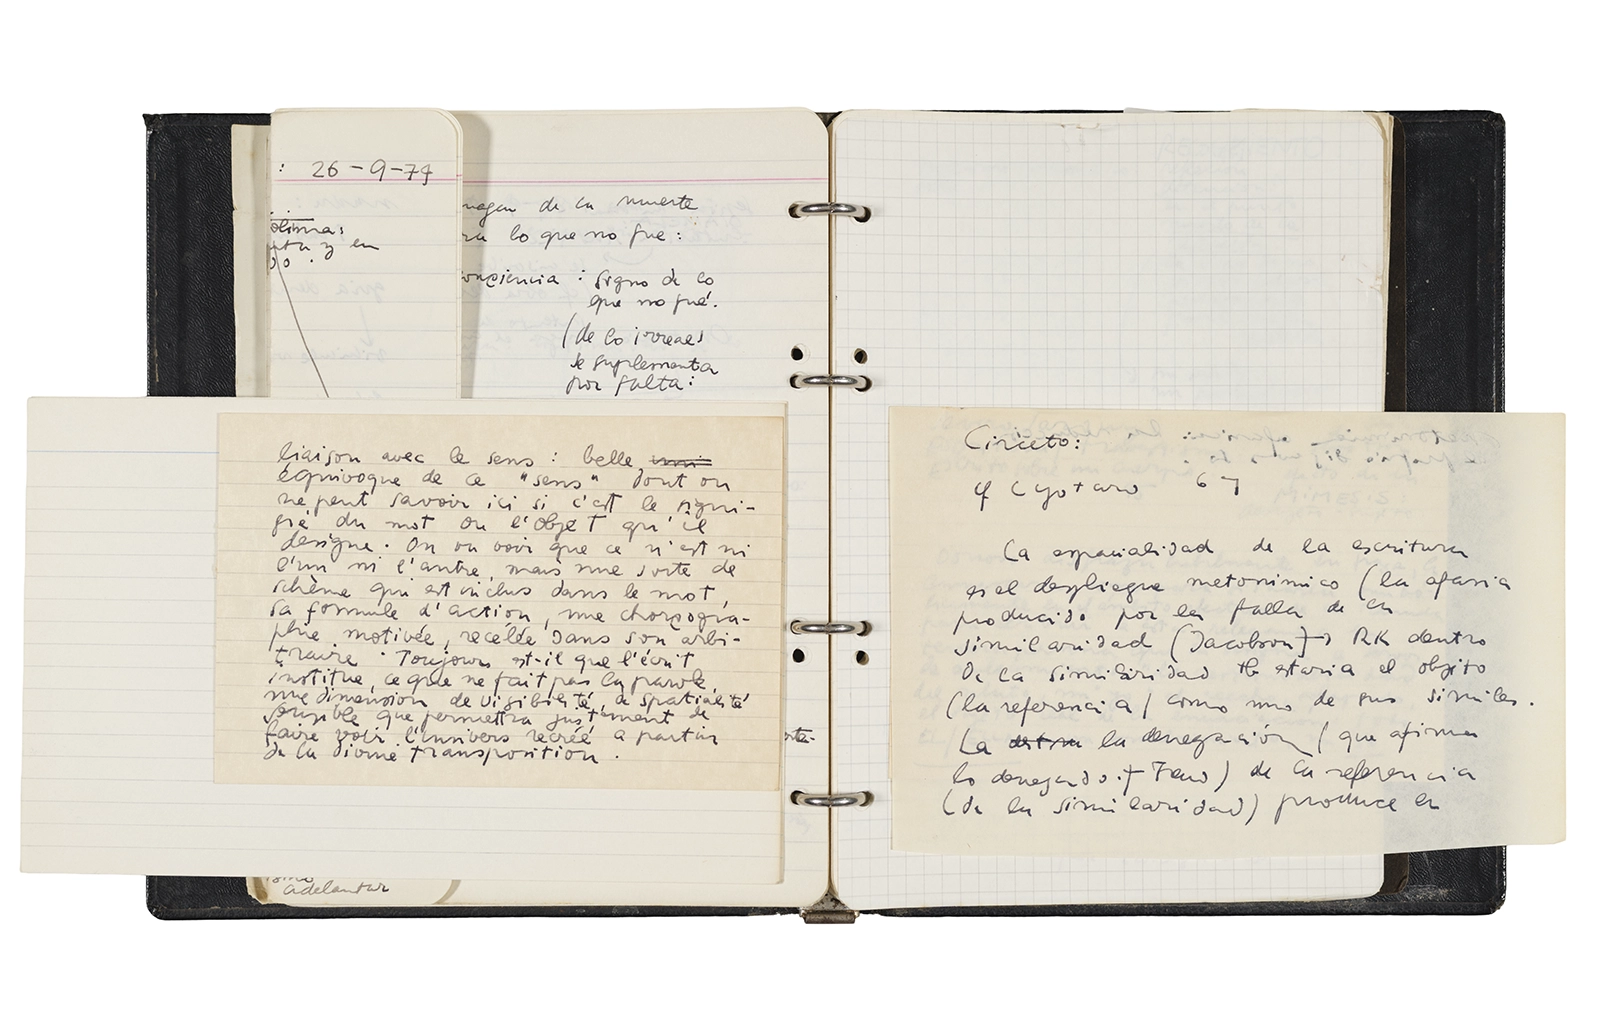 : 26-9-74
olima:
y en
magen de la muerte
ra lo que no fue:
onsciencia : signo de lo
que no fué.
(de lo irreal
se suplementa
por falta:
liaison avec le sens : belle
équivoque de ce "sens" dont on
ne peut savoir ici si c'est le signi-
fié du mot ou l'objet qu'il
designe. On va voir que ce n'est ni
l'un ni l'autre, mais une sorte de
schème qui est inclus dans le mot,
sa formule d'action, une chorégra-
phie motivée, recélée dans son arbi-
traire. Toujours est-il que l'écrit
institue, ce que ne fait pas la parole,
une dimension de visibilité, de spatialité
sensible que permettra justement de
faire voir l'univers recréé a partir
de la divine transposition.
adelantar
Circeto:
cf Lyotard 67
La espacialidad de la escritura
es el despliegue metonimico (la afasia
producida por la falla de la
similaridad (Jacobson) → RK dentro
de la similaridad estaria el objeto
(la referencia) como uno de sus similes.
La la denegación (que afirma
lo denegado : Freud) de la referencia
(de la similaridad) produce la